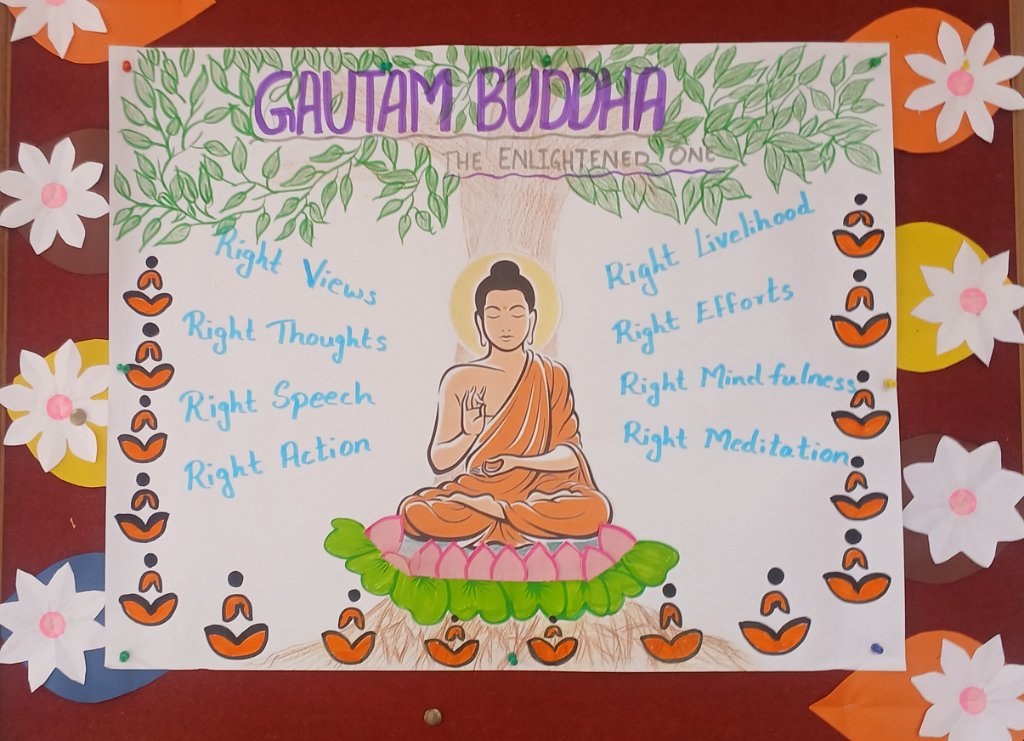 GAUTAM BUDDHA
THE ENLIGHTENER ONE
Right Views
Right Thoughts
Right Speech
Right Action
Right Livelihood
Right Efforts
Right Mindfulness
Right Meditation